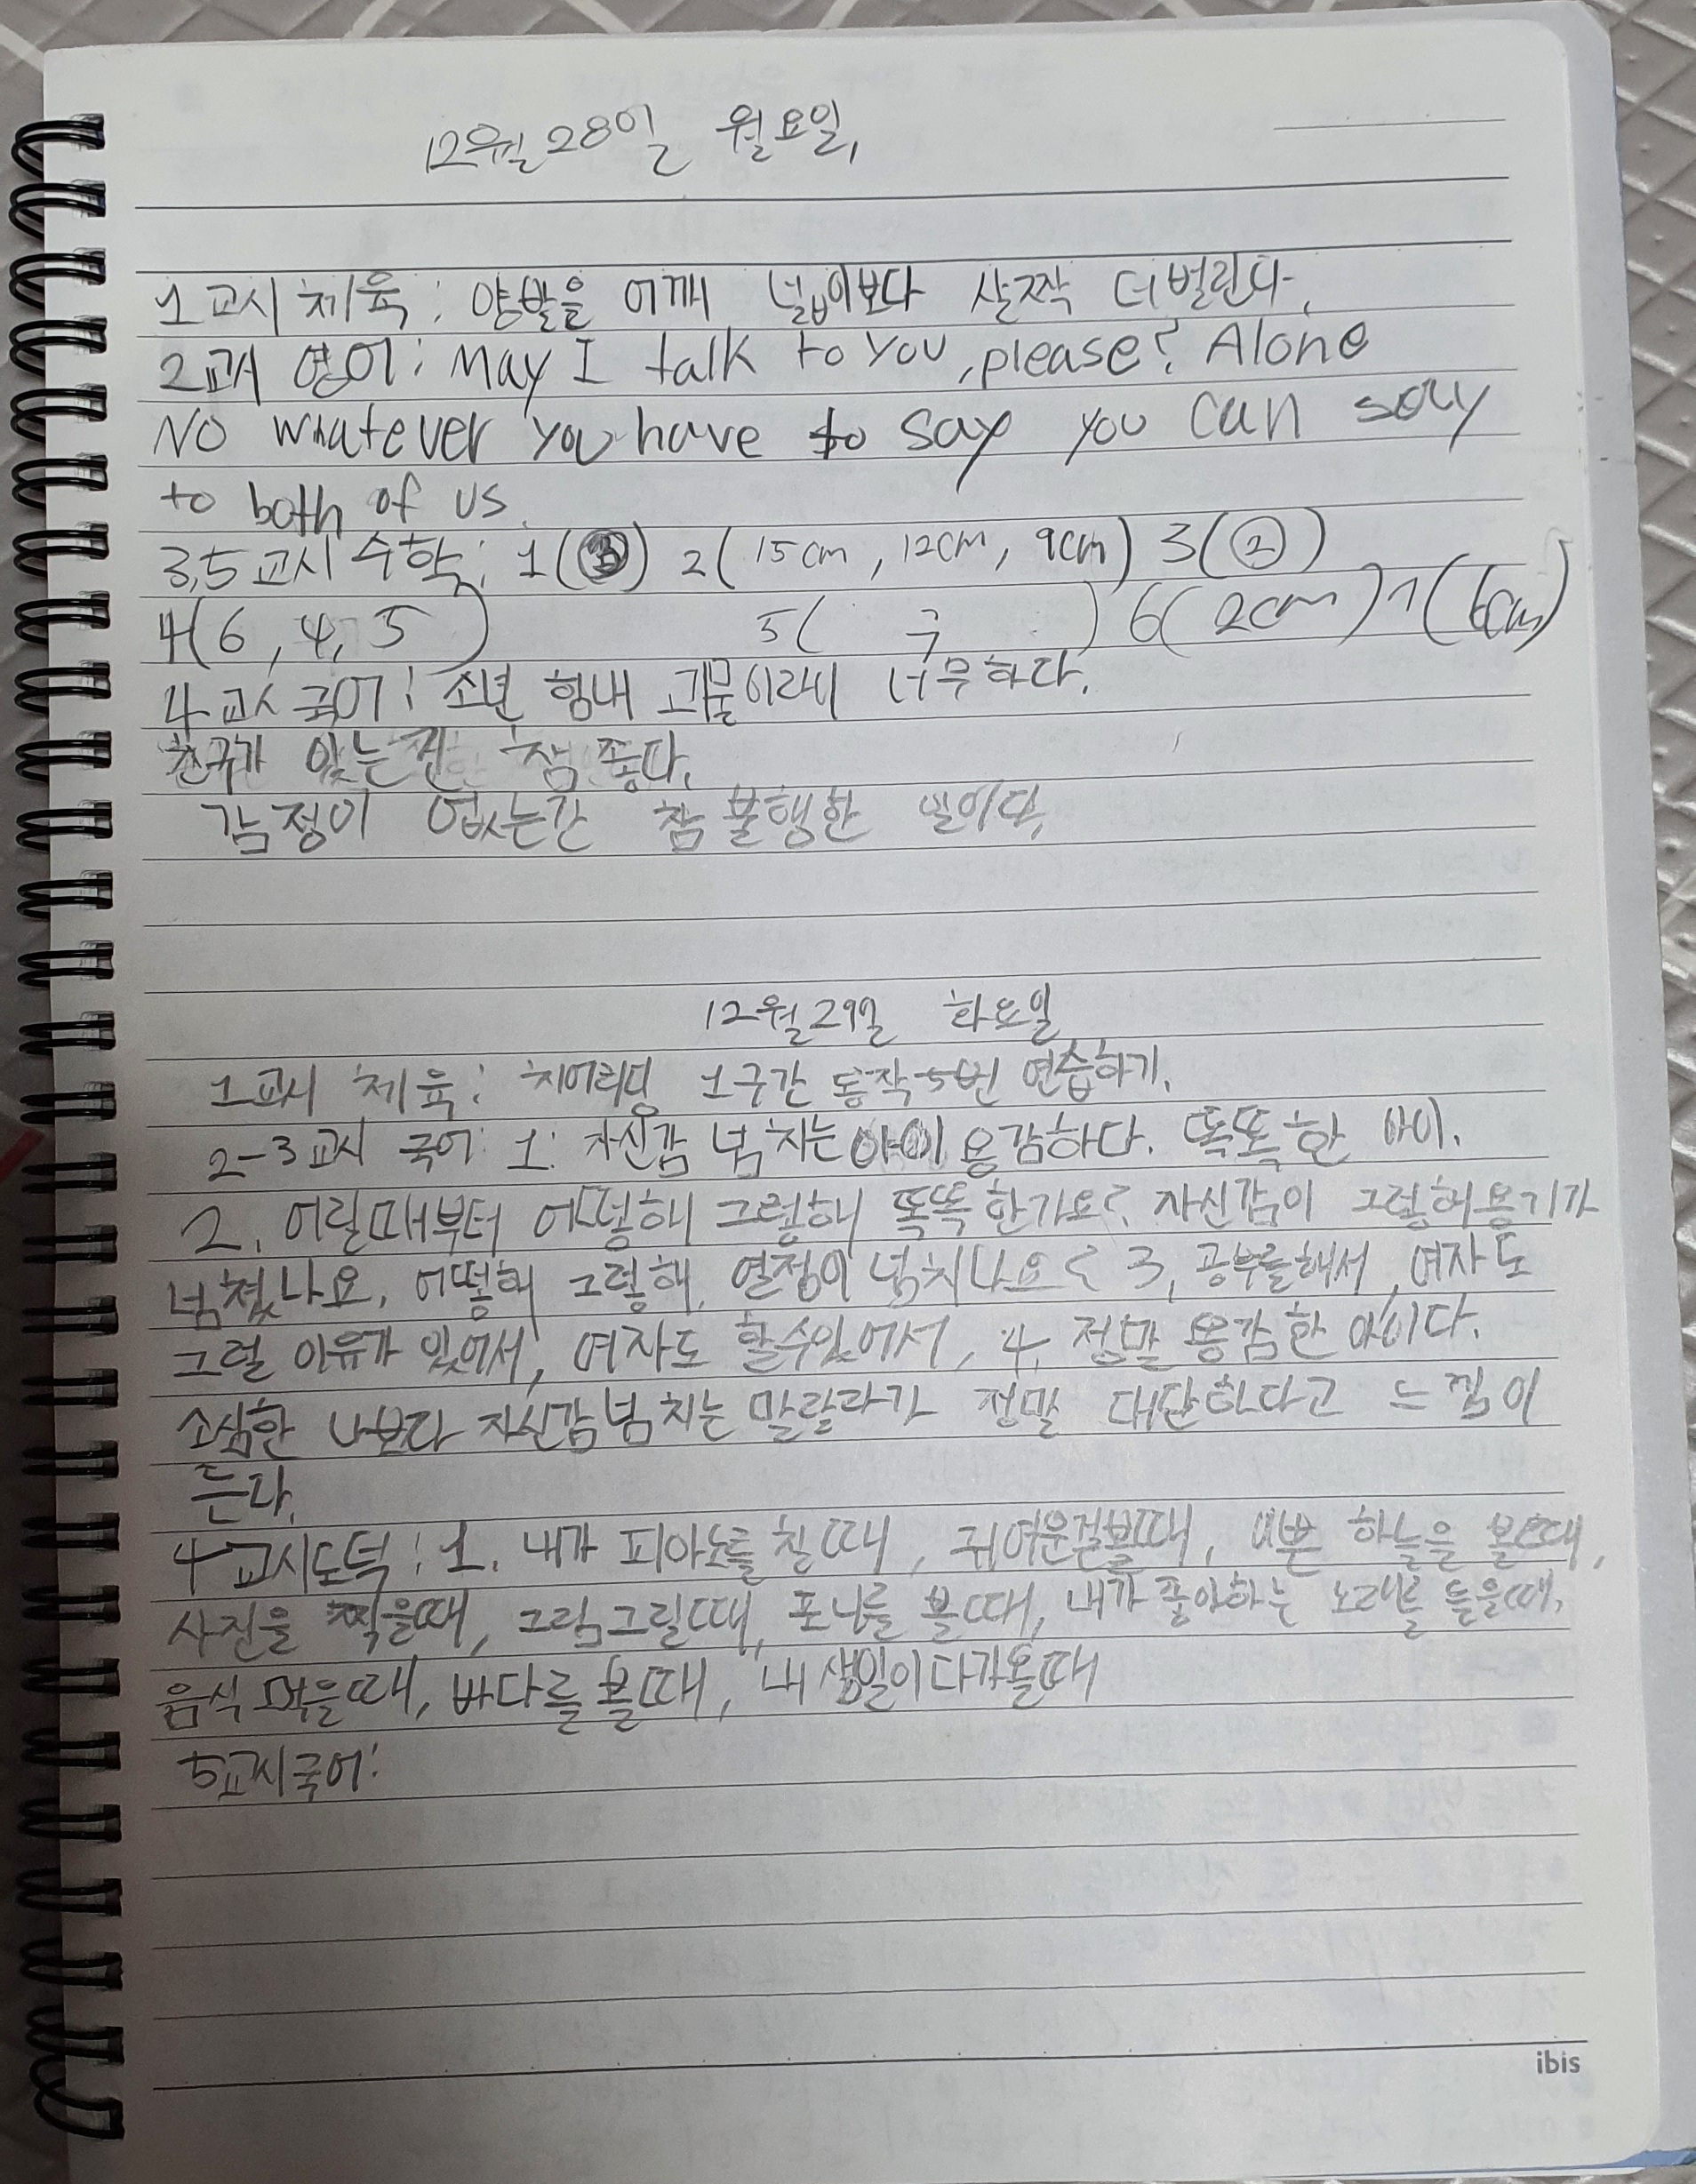 12월 28일 월요일,
1교시 체육: 양발을 어깨 넓이보다 살짝 더 벌린다.
2교시 영어: May I talk to you, please? Alone
No whatever you have to say you can say
to both of us.
3,5교시 수학: 1(③) 2(15cm, 12cm, 9cm) 3(②)
4(6, 4, 5) 5(구) 6(2cm) 7(6cm)
4교시 국어: 소년 형내 괴물이라니 너무하다.
친구가 있는건 참 좋다.
감정이 없는간 참 불행한 일이다.
12월 29일 화요일
1교시 체육: 치어리딩 1구간 동작 5번 연습하기.
2-3교시 국어: 1. 자신감 넘치는 아이 용감하다. 똑똑한 아이.
2. 어릴때부터 어떻해 그렇해 똑똑한가요? 자신감이 그렇해 용기가
넘쳤나요. 어떻해 그렇해. 열정이 넘치나요? 3, 공부를해서, 여자도
그럴 이유가 있어서, 여자도 할수있어서, 4, 정말 용감한 아이다.
소심한 나보다 자신감 넘치는 말랄라가 정말 대단하다고 느낌이
든다.
4교시도덕: 1. 내가 피아노를 칠때, 귀여운걸볼때, 예쁜 하늘을 볼때,
사진을 찍을때, 그림그릴때, 포니를 볼때, 내가 좋아하는 노래를 들을때,
음식 먹을때, 바다를 볼때, 내 생일이다가올때
5교시국어:
ibis